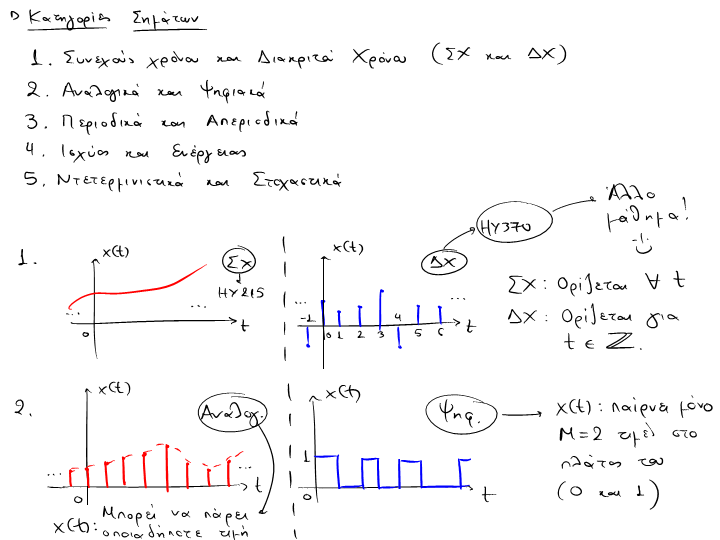 Κατηγορίες Σημάτων
1. Συνεχούς χρόνου και Διακριτά Χρόνου (ΣΧ και ΔΧ)
2. Αναλογικά και Ψηφιακά
3. Περιοδικά και Απεριοδικά
4. Ισχύος και Ενέργειας
5. Ντετερμινιστικά και Στοχαστικά
1.
x(t)
ΣΧ
HY215
...
...
0
t
x(t)
ΔΧ
HY370
Άλλο
μάθημα!
...
-1
0 1 2 3 4 5 6
...
t
ΣΧ: Ορίζεται ∀ t
ΔΧ: Ορίζεται για
t ∈ ℤ.
2.
x(t)
Αναλογ.
...
...
0
t
x(t): Μπορεί να πάρει
οποιαδήποτε τιμή
x(t)
Ψηφ.
1
0
t
x(t): παίρνει μόνο
M=2 τιμές στο
πλάτος του
(0 και 1)